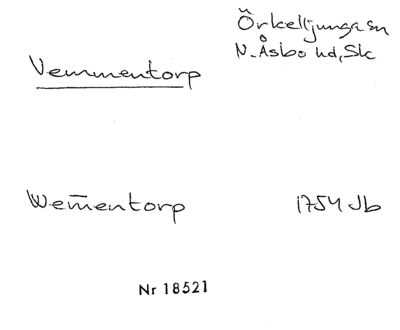 Örkelljunga sn
Vemmentorp N. Åsbo hd, Sk
Wem̅entorp 1754 Jb
Nr 18521